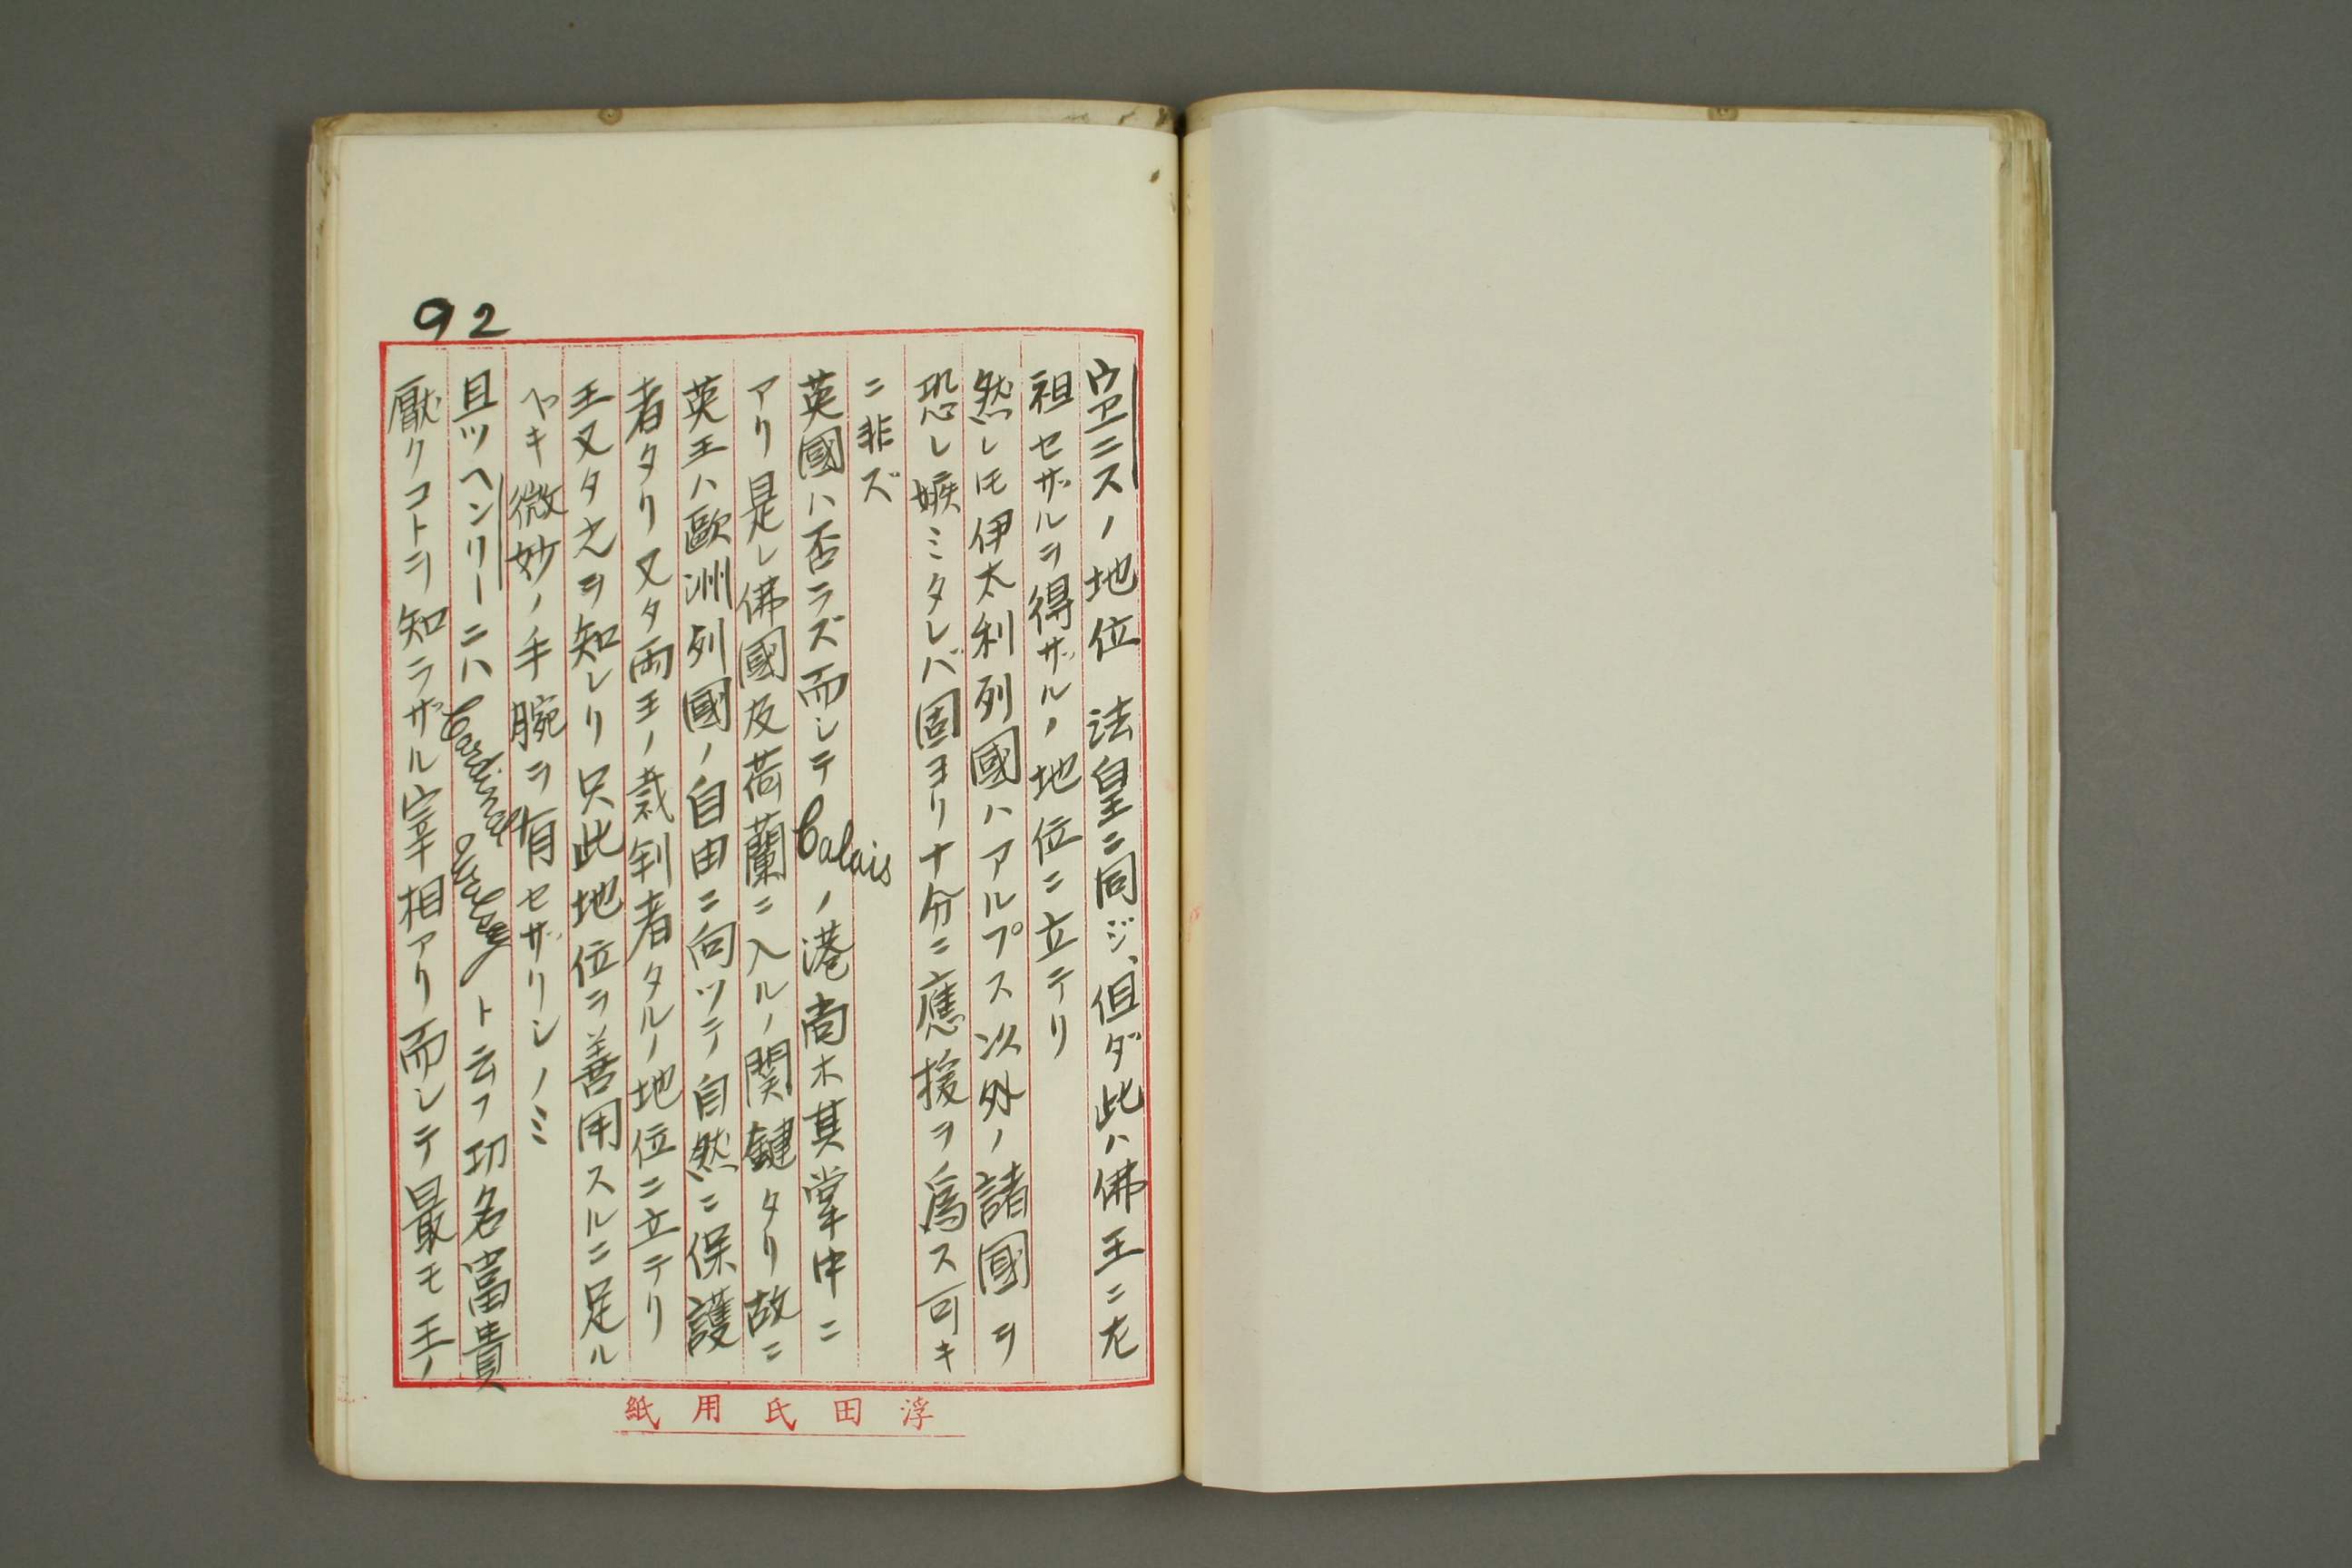 92
ヴェニスノ地位 法皇ニ同ジ、但ダ此ハ佛王ニ左
袒セザルヲ得ザルノ地位ニ立テリ
然レ𪜈伊太利列國ハアルプス以外ノ諸國ヲ
恐レ嫉ミタレバ固ヨリ十分ニ應援ヲ爲ス可キ
ニ非ズ
英國ハ否ラズ而シテCalaisノ港尚ホ其掌中ニ
アリ是レ佛國及荷蘭ニ入ルノ関鍵タリ故ニ
英王ハ歐洲列國ノ自由ニ向ツテ自然ニ保護
者タリ又タ両王ノ裁判者タルノ地位ニ立テリ
王又タ之ヲ知レリ只此地位ヲ善用スルニ足ル
ヘキ微妙ノ手腕ヲ有セザリシノミ
且ツヘンリーニハCardinal Wolseyト云フ功名富貴
厭クコトヲ知ラザル宰相アリ而シテ最モ王ノ
浮田氏用紙